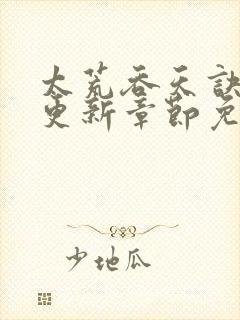 太荒吞天诀
更新章节免
少地瓜